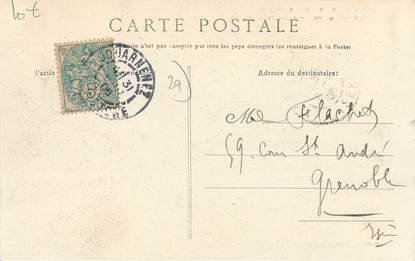 lot
CARTE POSTALE
n'est pas acceptée par tous les pays étrangers (se renseigner à la Poste)
Adresse du destinataire:
DOUARNENEZ
29
59. Cours St André
Grenoble
Isère